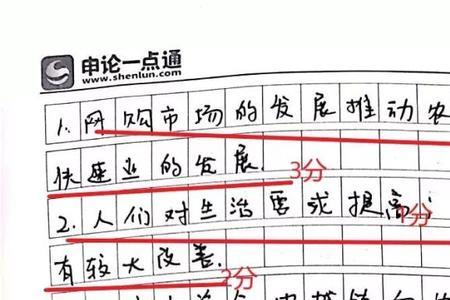 申论一点通
www.shenlun.com
1.网购市场的发展推动农
快速业的发展.
3分
2.人们对生活要求提高
1分
有较大改善.
2分